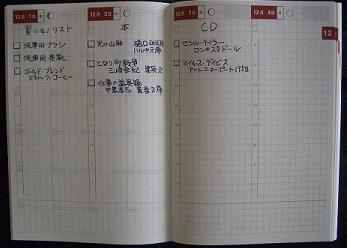 12月1日
買いモノリスト
洗車用ブラシ
洗車用
ゴールド・ブレンド
コーヒー
12月2日
本
光の山脈
樋口明雄
ハルキ文庫
となり町戦争
三崎亜記 集英文
仕事の
中島孝志
12月3日
CD
セシル・テイラー
コンキスタドール
マイルス・デイビス
アット・ニューポート1958
12月4日
12